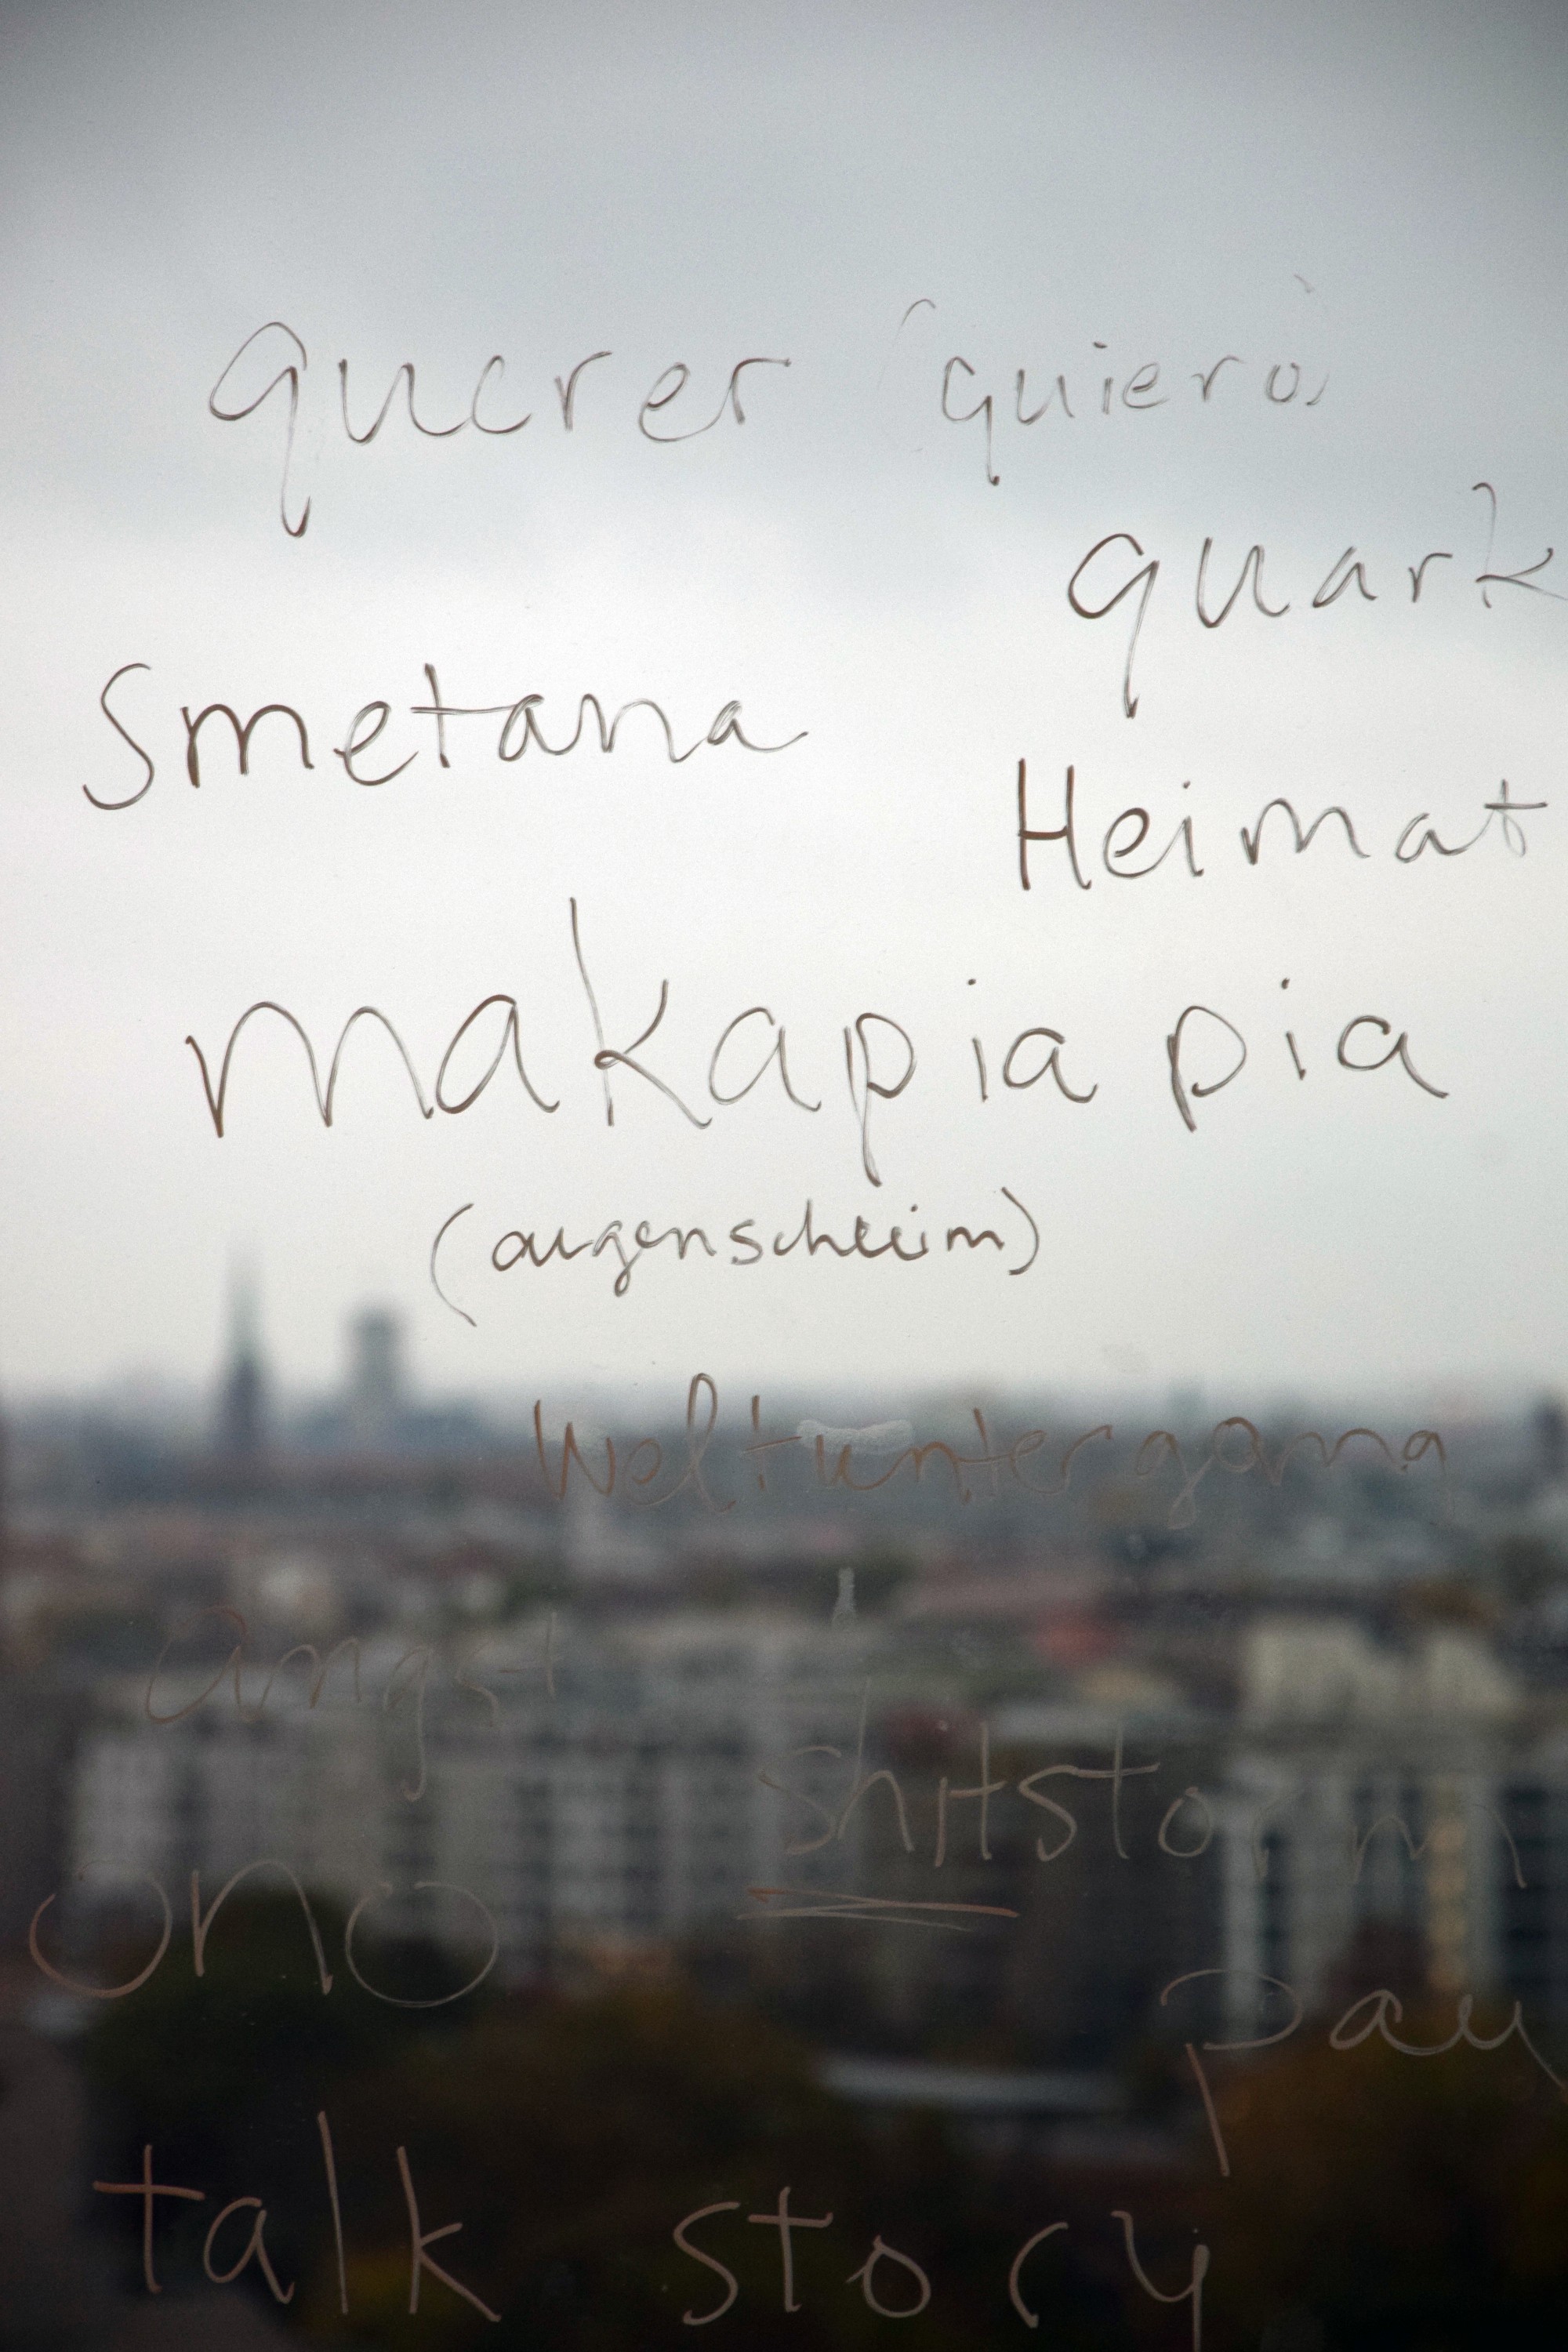 querer (quiero)
quark
Smetana
Heimat
makapiapia
(augenschleim)
Weltuntergang
angst
shitstorm
ono
pau
talk story